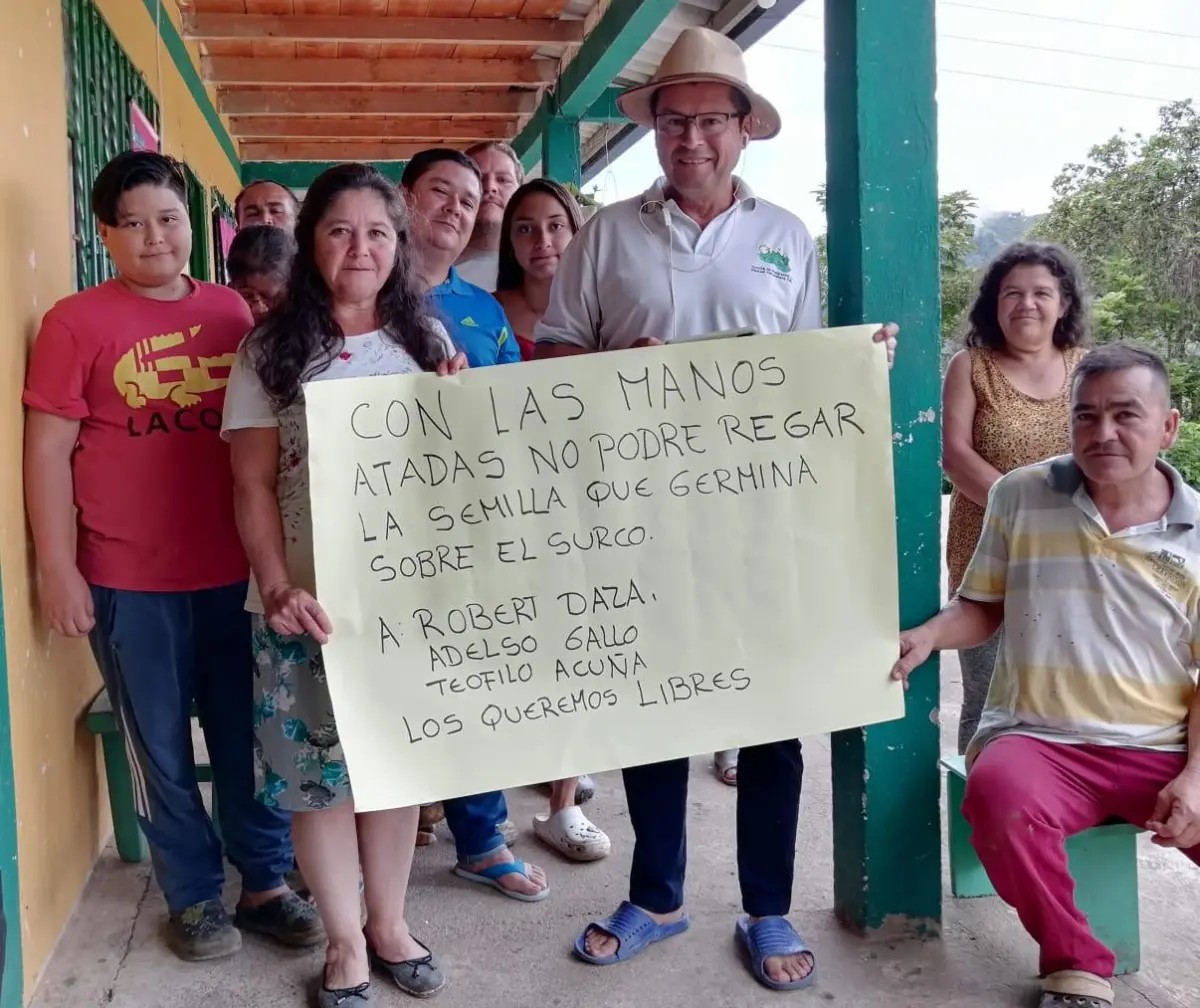 CON LAS MANOS
ATADAS NO PODRE REGAR
LA SEMILLA QUE GERMINA
SOBRE EL SURCO.
A: ROBERT DAZA,
ADELSO GALLO
TEOFILO ACUÑA
LOS QUEREMOS LIBRES
LACO